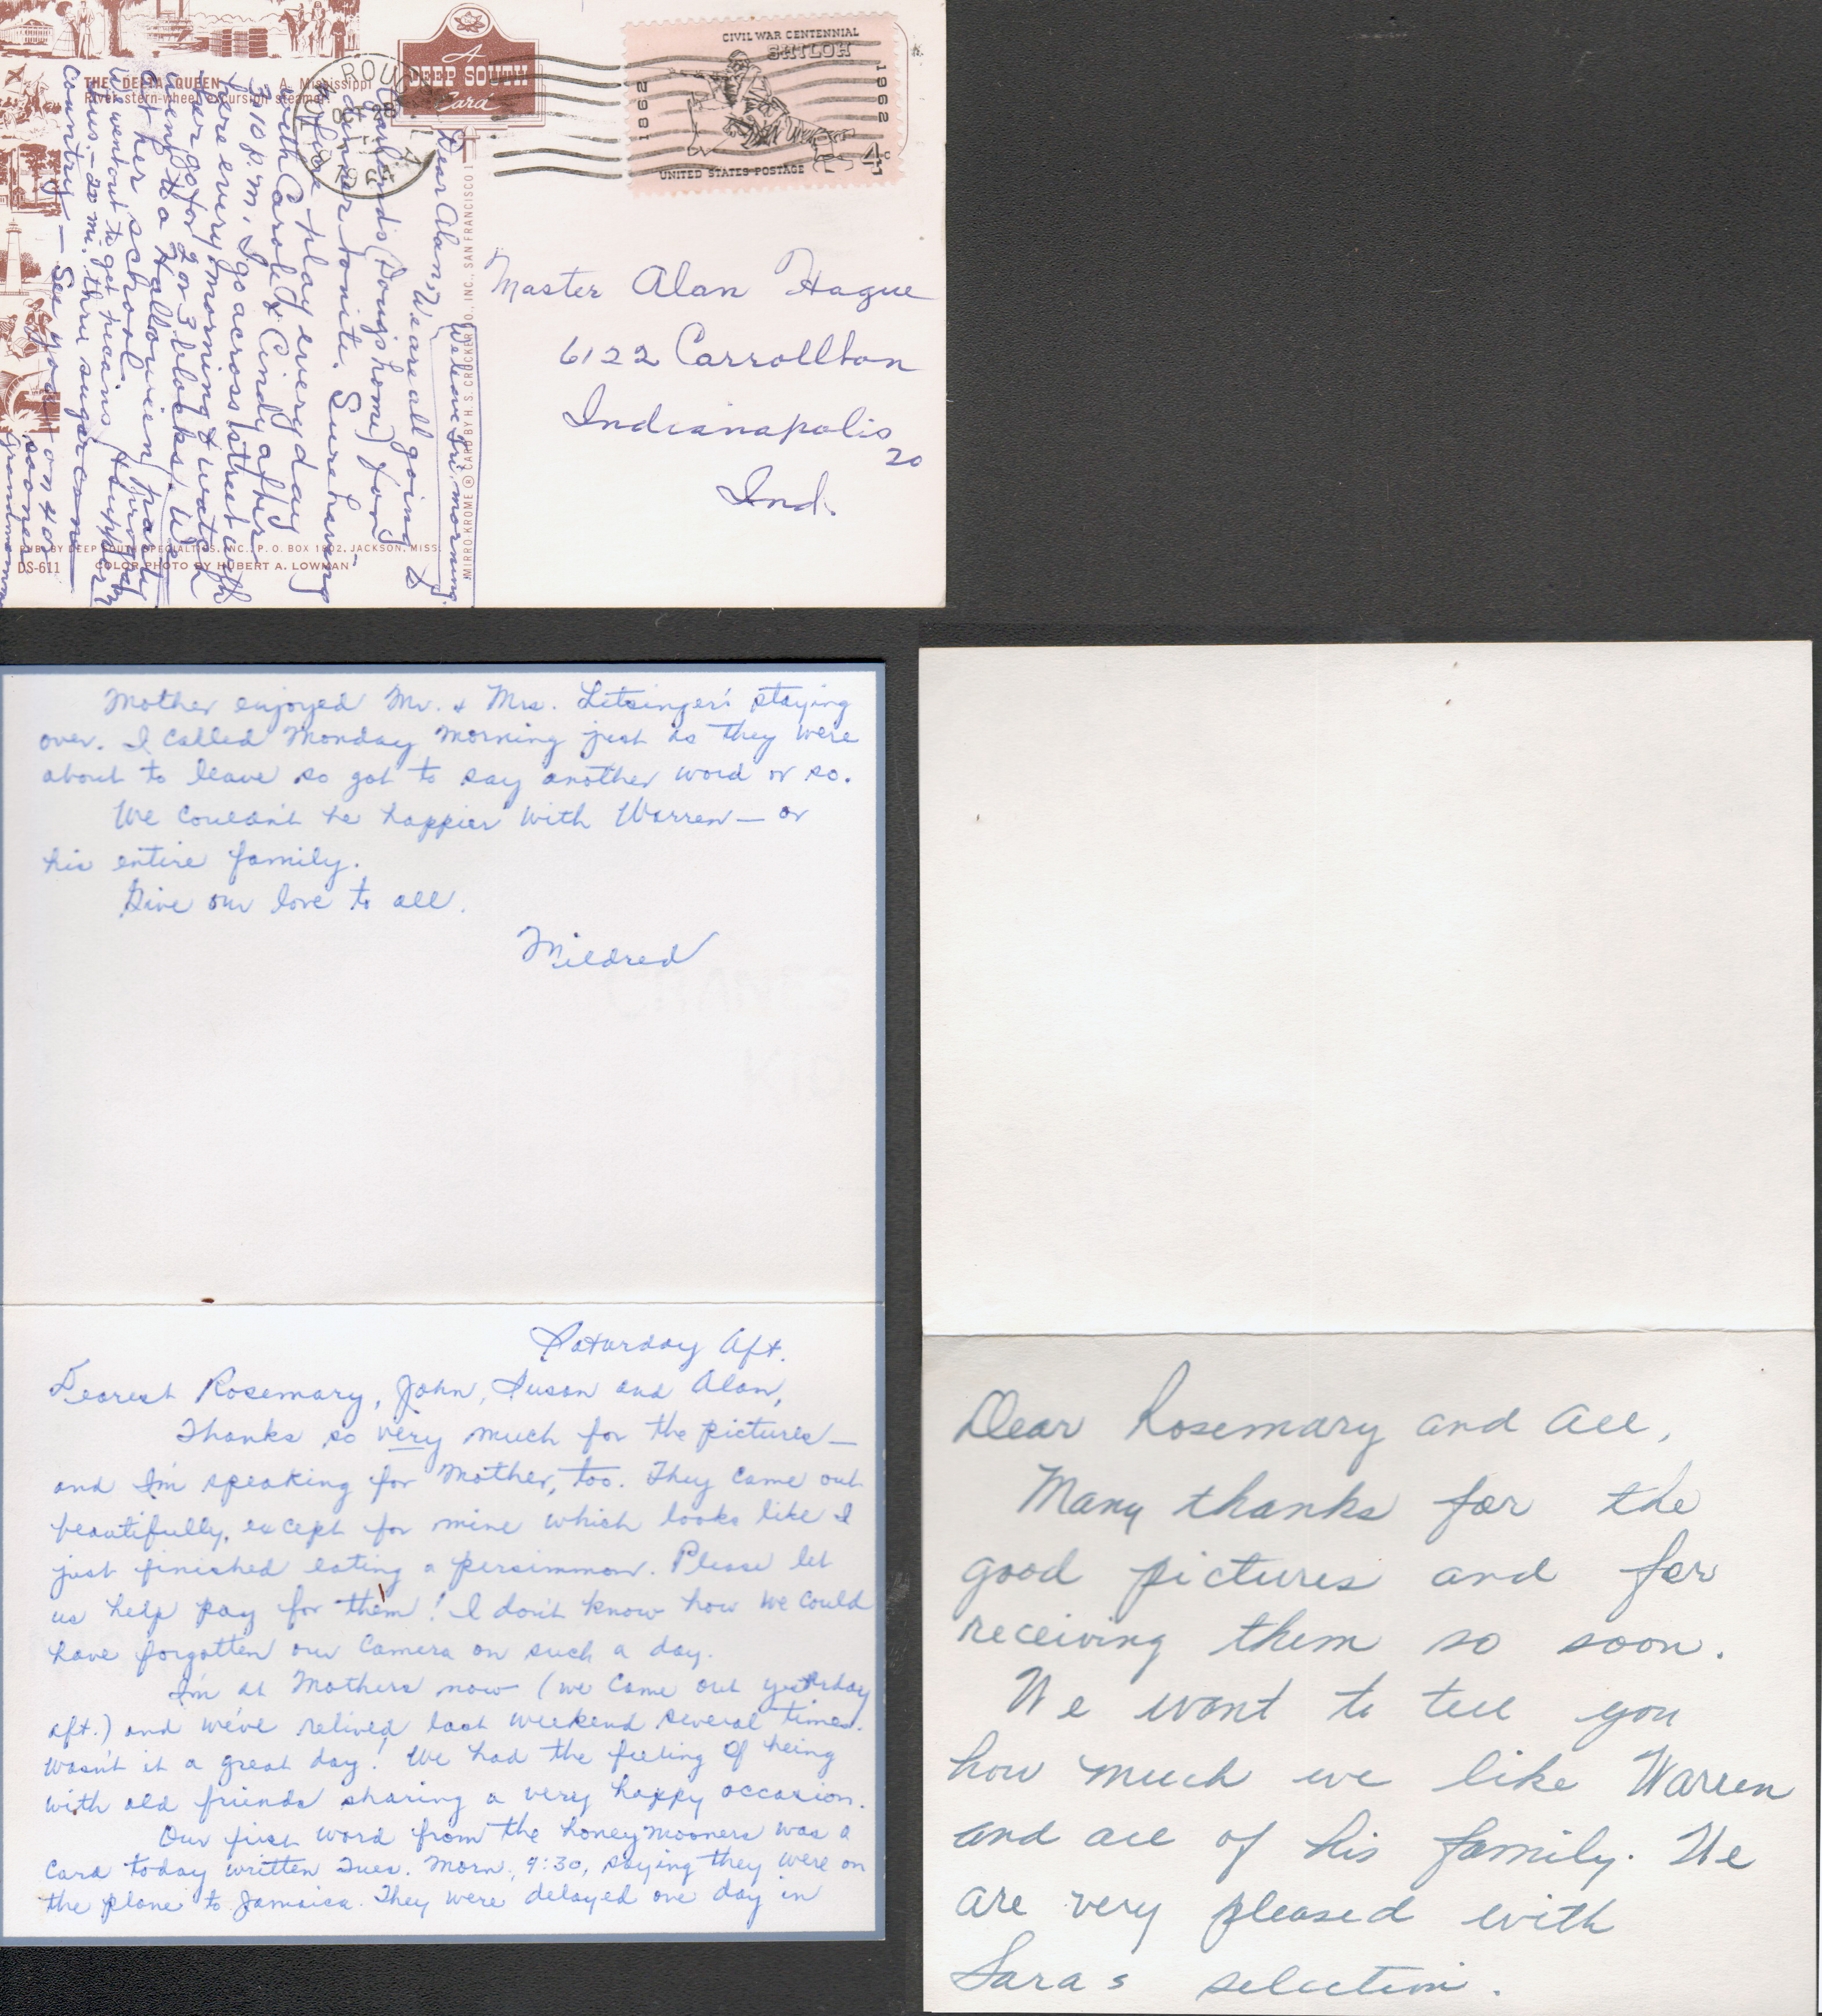 THE DELTA QUEEN A Mississippi
River stern-wheel excursion steamer.
A
DEEP SOUTH
Card
CIVIL WAR CENTENNIAL
SHILOH
1862
1962
4c
UNITED STATES POSTAGE
We leave Fri. morning.
Dear Alan,
We are all going to
(Doug's home) for
dinner tonite. Sure having
a fine play every day
with Carol & Cindy after
3:10 p.m. I go across street with
here every morning & watch
her go for 2 or 3 blocks. We
went to a Hallowien party
at her school.
We went out to get pecans
20 mi. thru sugar cane
country — See you on 4 or
sooner
Grandma
MIRRO-KROME ® CARD BY H. S. CROCKER CO., INC., SAN FRANCISCO 1
PUB. BY DEEP SOUTH SPECIALTIES, INC., P. O. BOX 1902, JACKSON, MISS.
DS-611 COLOR PHOTO BY HUBERT A. LOWMAN
Master Alan Hague
6122 Carrollton
Indianapolis
20
Ind.
Mother enjoyed Mr. & Mrs. Letsinger's staying
over. I called Monday morning just as they were
about to leave so got to say another word or so.
We couldn't be happier with Warren — or
his entire family.
Give our love to all.
Mildred
Saturday Aft.
Dearest Rosemary, John, Susan and Alan,
Thanks so very much for the pictures —
and I'm speaking for Mother, too. They came out
beautifully, except for mine which looks like I
just finished eating a persimmon. Please let
us help pay for them! I don't know how we could
have forgotten our camera on such a day.
I'm at Mothers now (we came out yesterday
aft.) and we've relived last weekend several times.
Wasn't it a great day! We had the feeling of being
with old friends sharing a very happy occasion.
Our first word from the honeymooners was a
card today written Tues. Morn, 9:30, saying they were on
the plane to Jamaica. They were delayed one day in
Dear Rosemary and All,
Many thanks for the
good pictures and for
receiving them so soon.
We want to tell you
how much we like Warren
and all of his family. We
are very pleased with
Sara's selection.